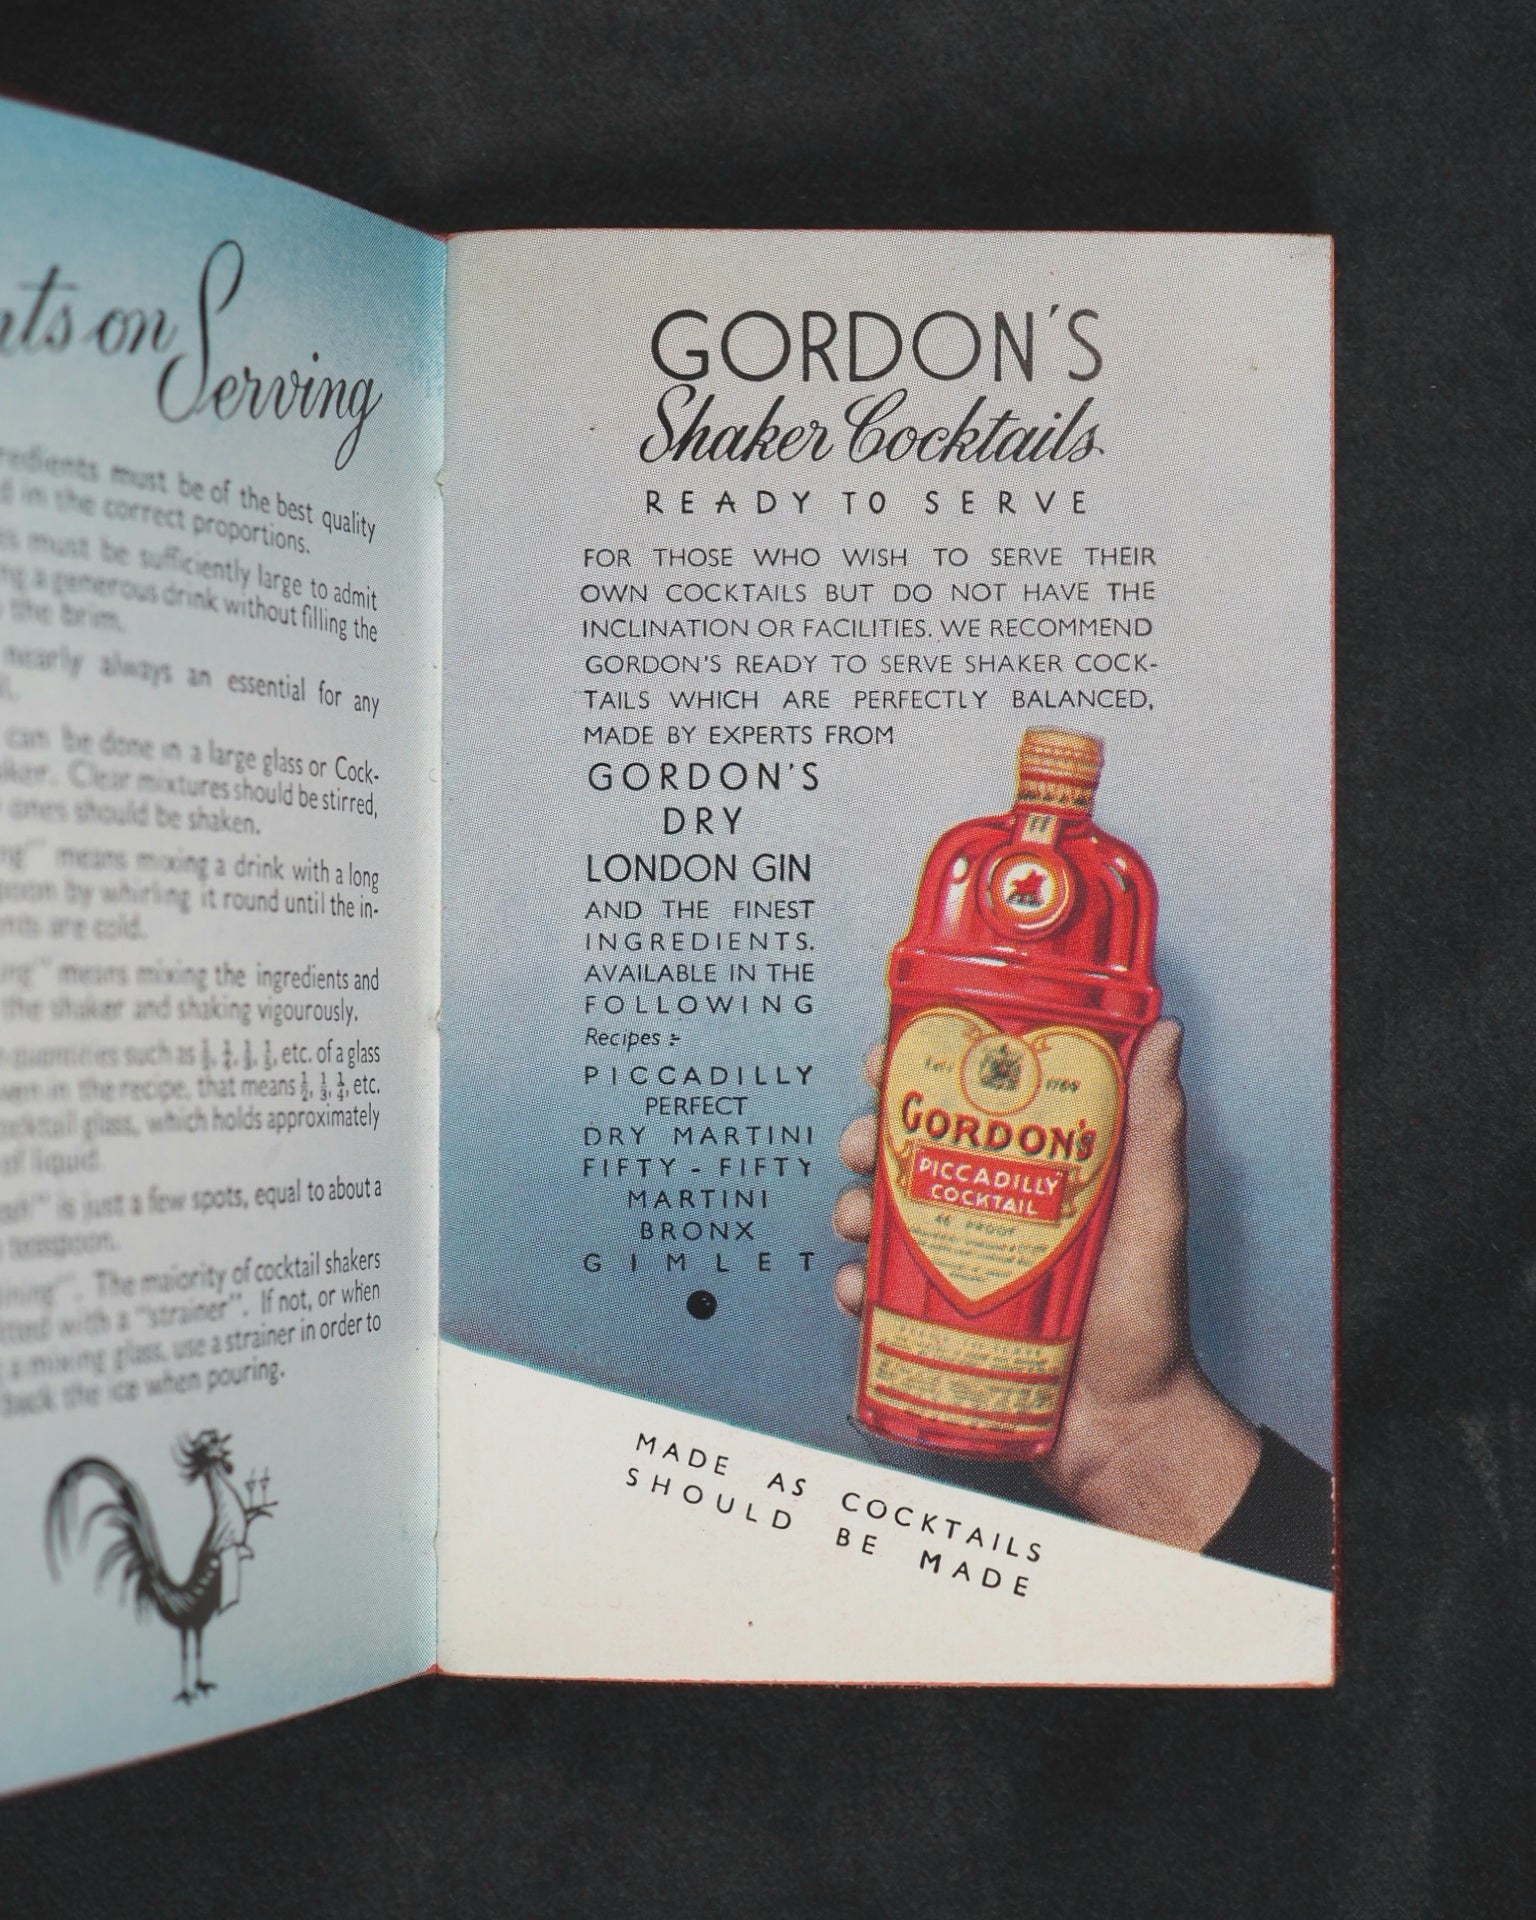 on Serving
must be of the best quality
in the correct proportions.
must be sufficiently large to admit
a generous drink without filling the
the brim.
nearly always an essential for any
can be done in a large glass or Cock-
Clear mixtures should be stirred,
ones should be shaken.
means mixing a drink with a long
by whirling it round until the in-
are cold.
means mixing the ingredients and
the shaker and shaking vigourously.
quantities such as etc. of a glass
in the recipe, that means ½, ⅓, ¼, etc.
glass, which holds approximately
of liquid.
is just a few spots, equal to about a
teaspoon.
The majority of cocktail shakers
with a "strainer". If not, or when
a mixing glass, use a strainer in order to
back the ice when pouring.
GORDON'S
Shaker Cocktails
READY TO SERVE
FOR THOSE WHO WISH TO SERVE THEIR
OWN COCKTAILS BUT DO NOT HAVE THE
INCLINATION OR FACILITIES. WE RECOMMEND
GORDON'S READY TO SERVE SHAKER COCK-
TAILS WHICH ARE PERFECTLY BALANCED,
MADE BY EXPERTS FROM
GORDON'S
DRY
LONDON GIN
AND THE FINEST
INGREDIENTS.
AVAILABLE IN THE
FOLLOWING
Recipes :-
PICCADILLY
PERFECT
DRY MARTINI
FIFTY - FIFTY
MARTINI
BRONX
GIMLET
1769
GORDON'S
PICCADILLY
COCKTAIL
46 PROOF
MADE AS COCKTAILS
SHOULD BE MADE